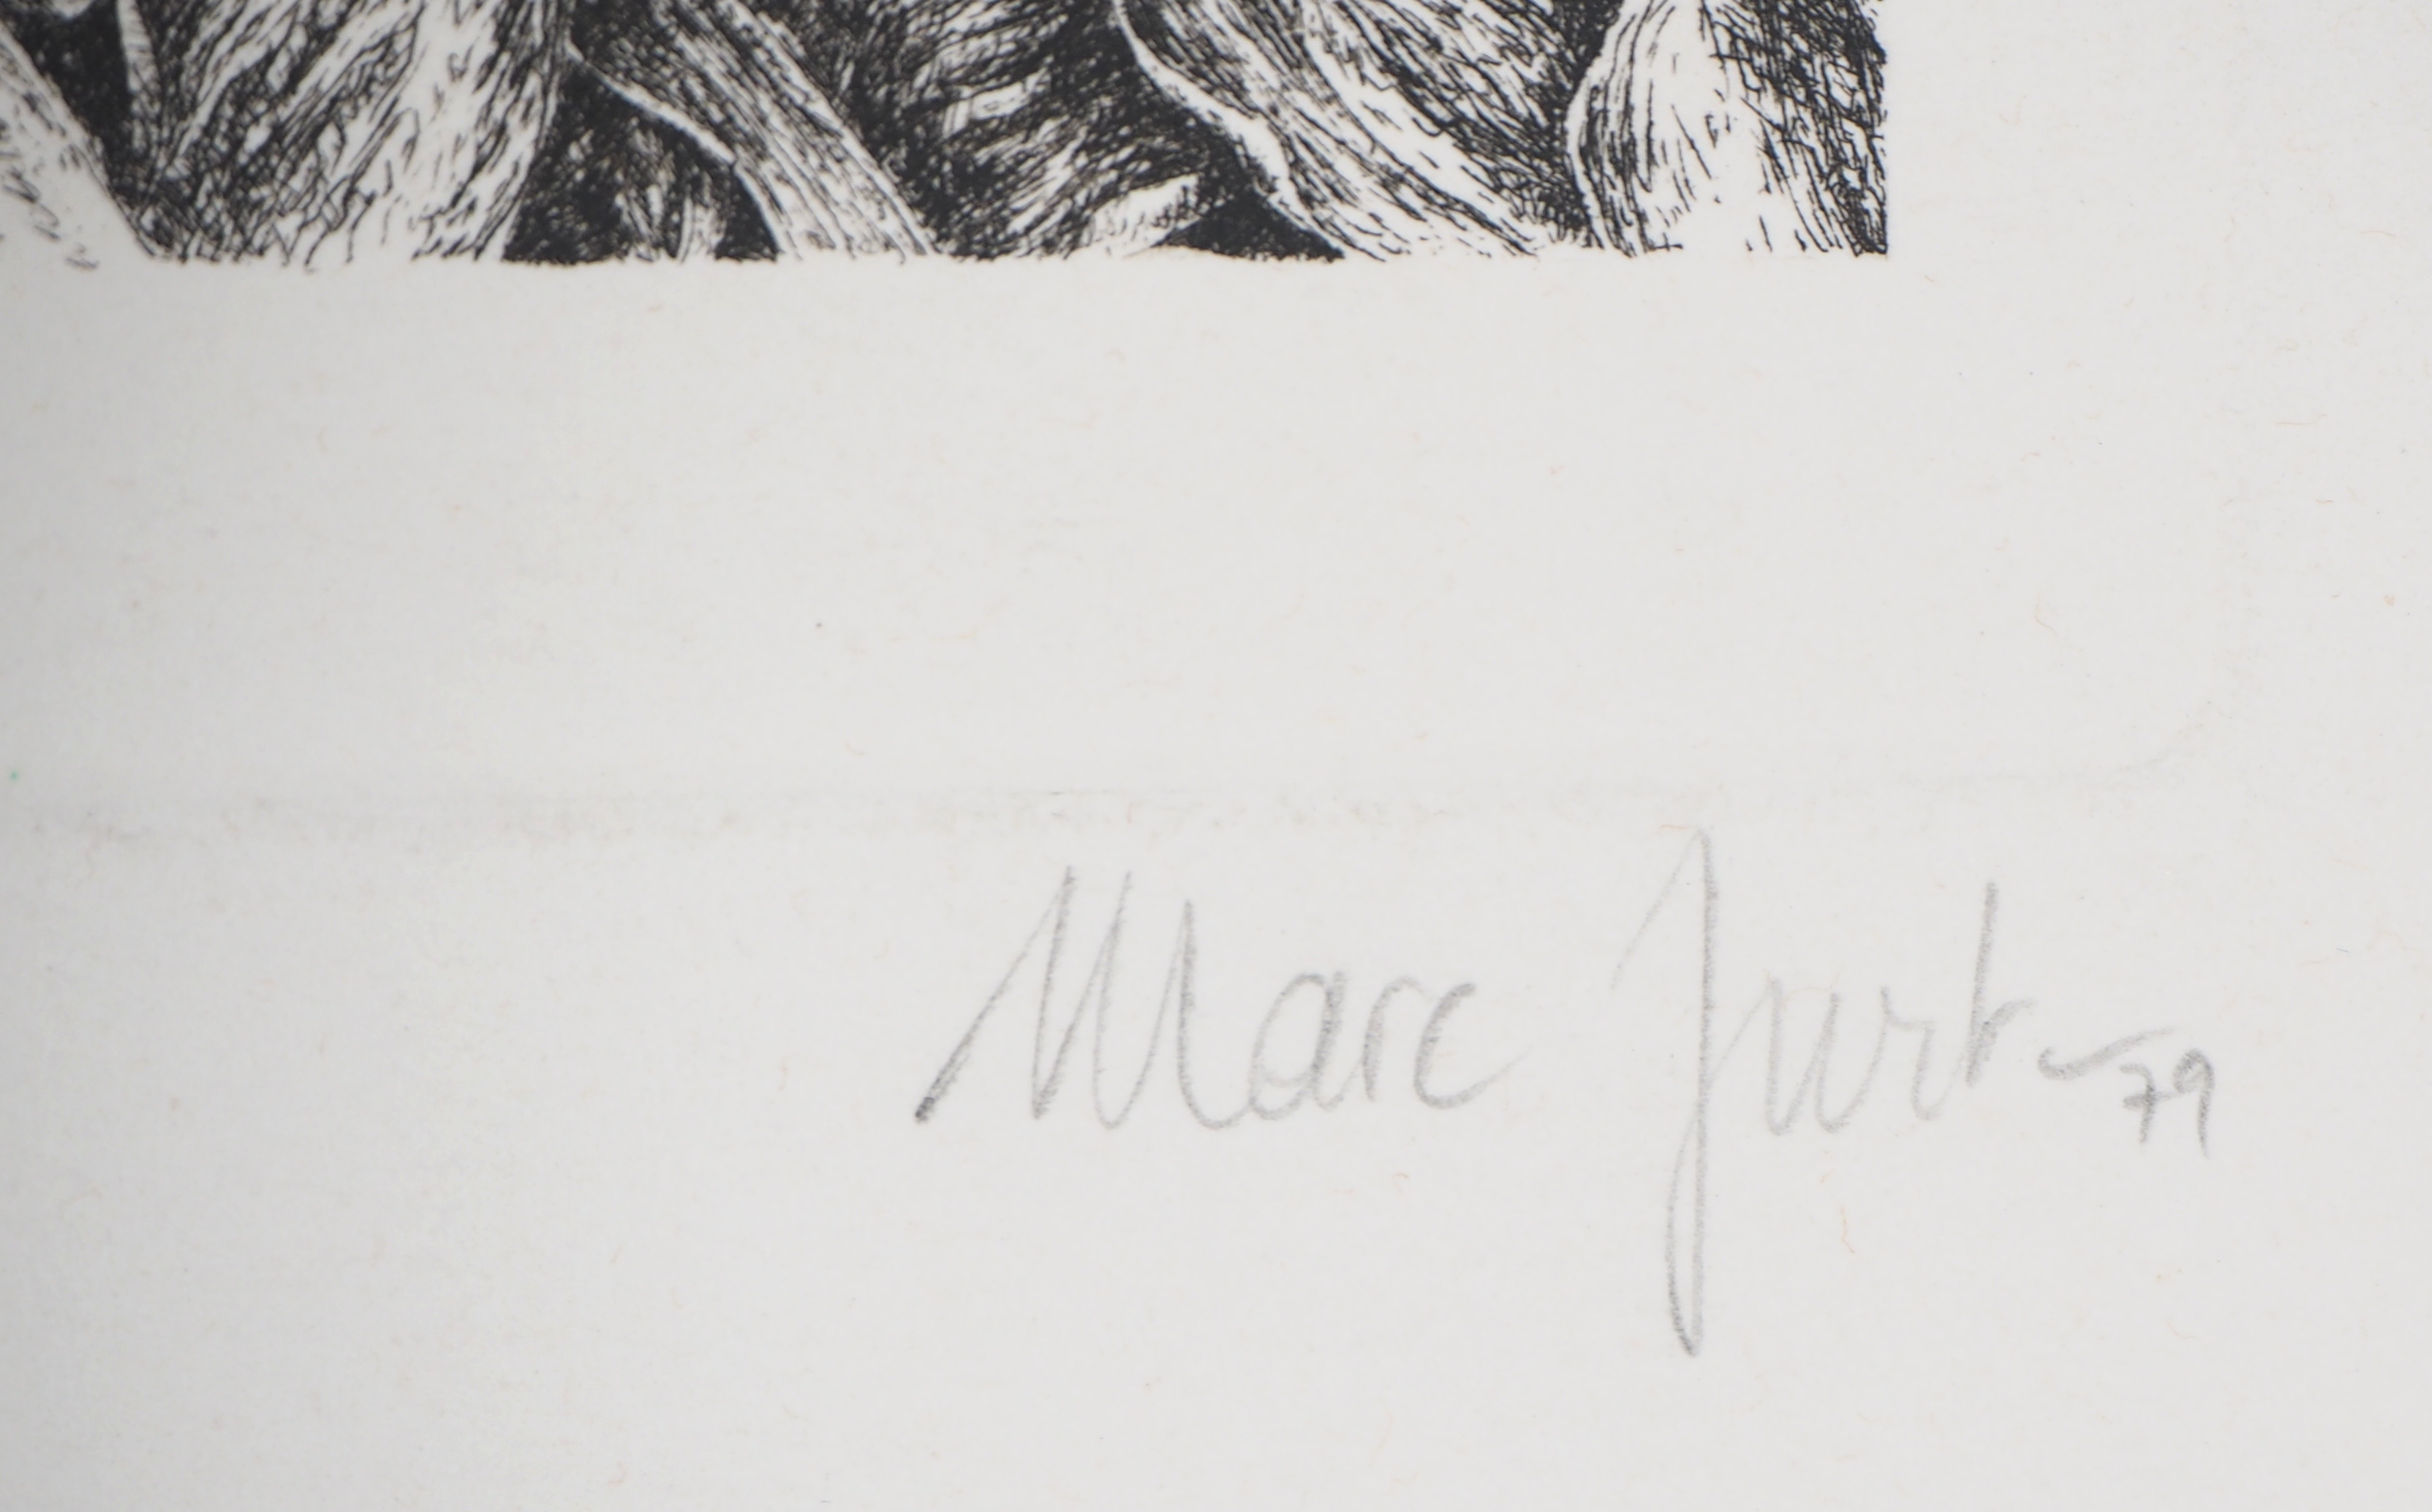 Marc Jurt 79